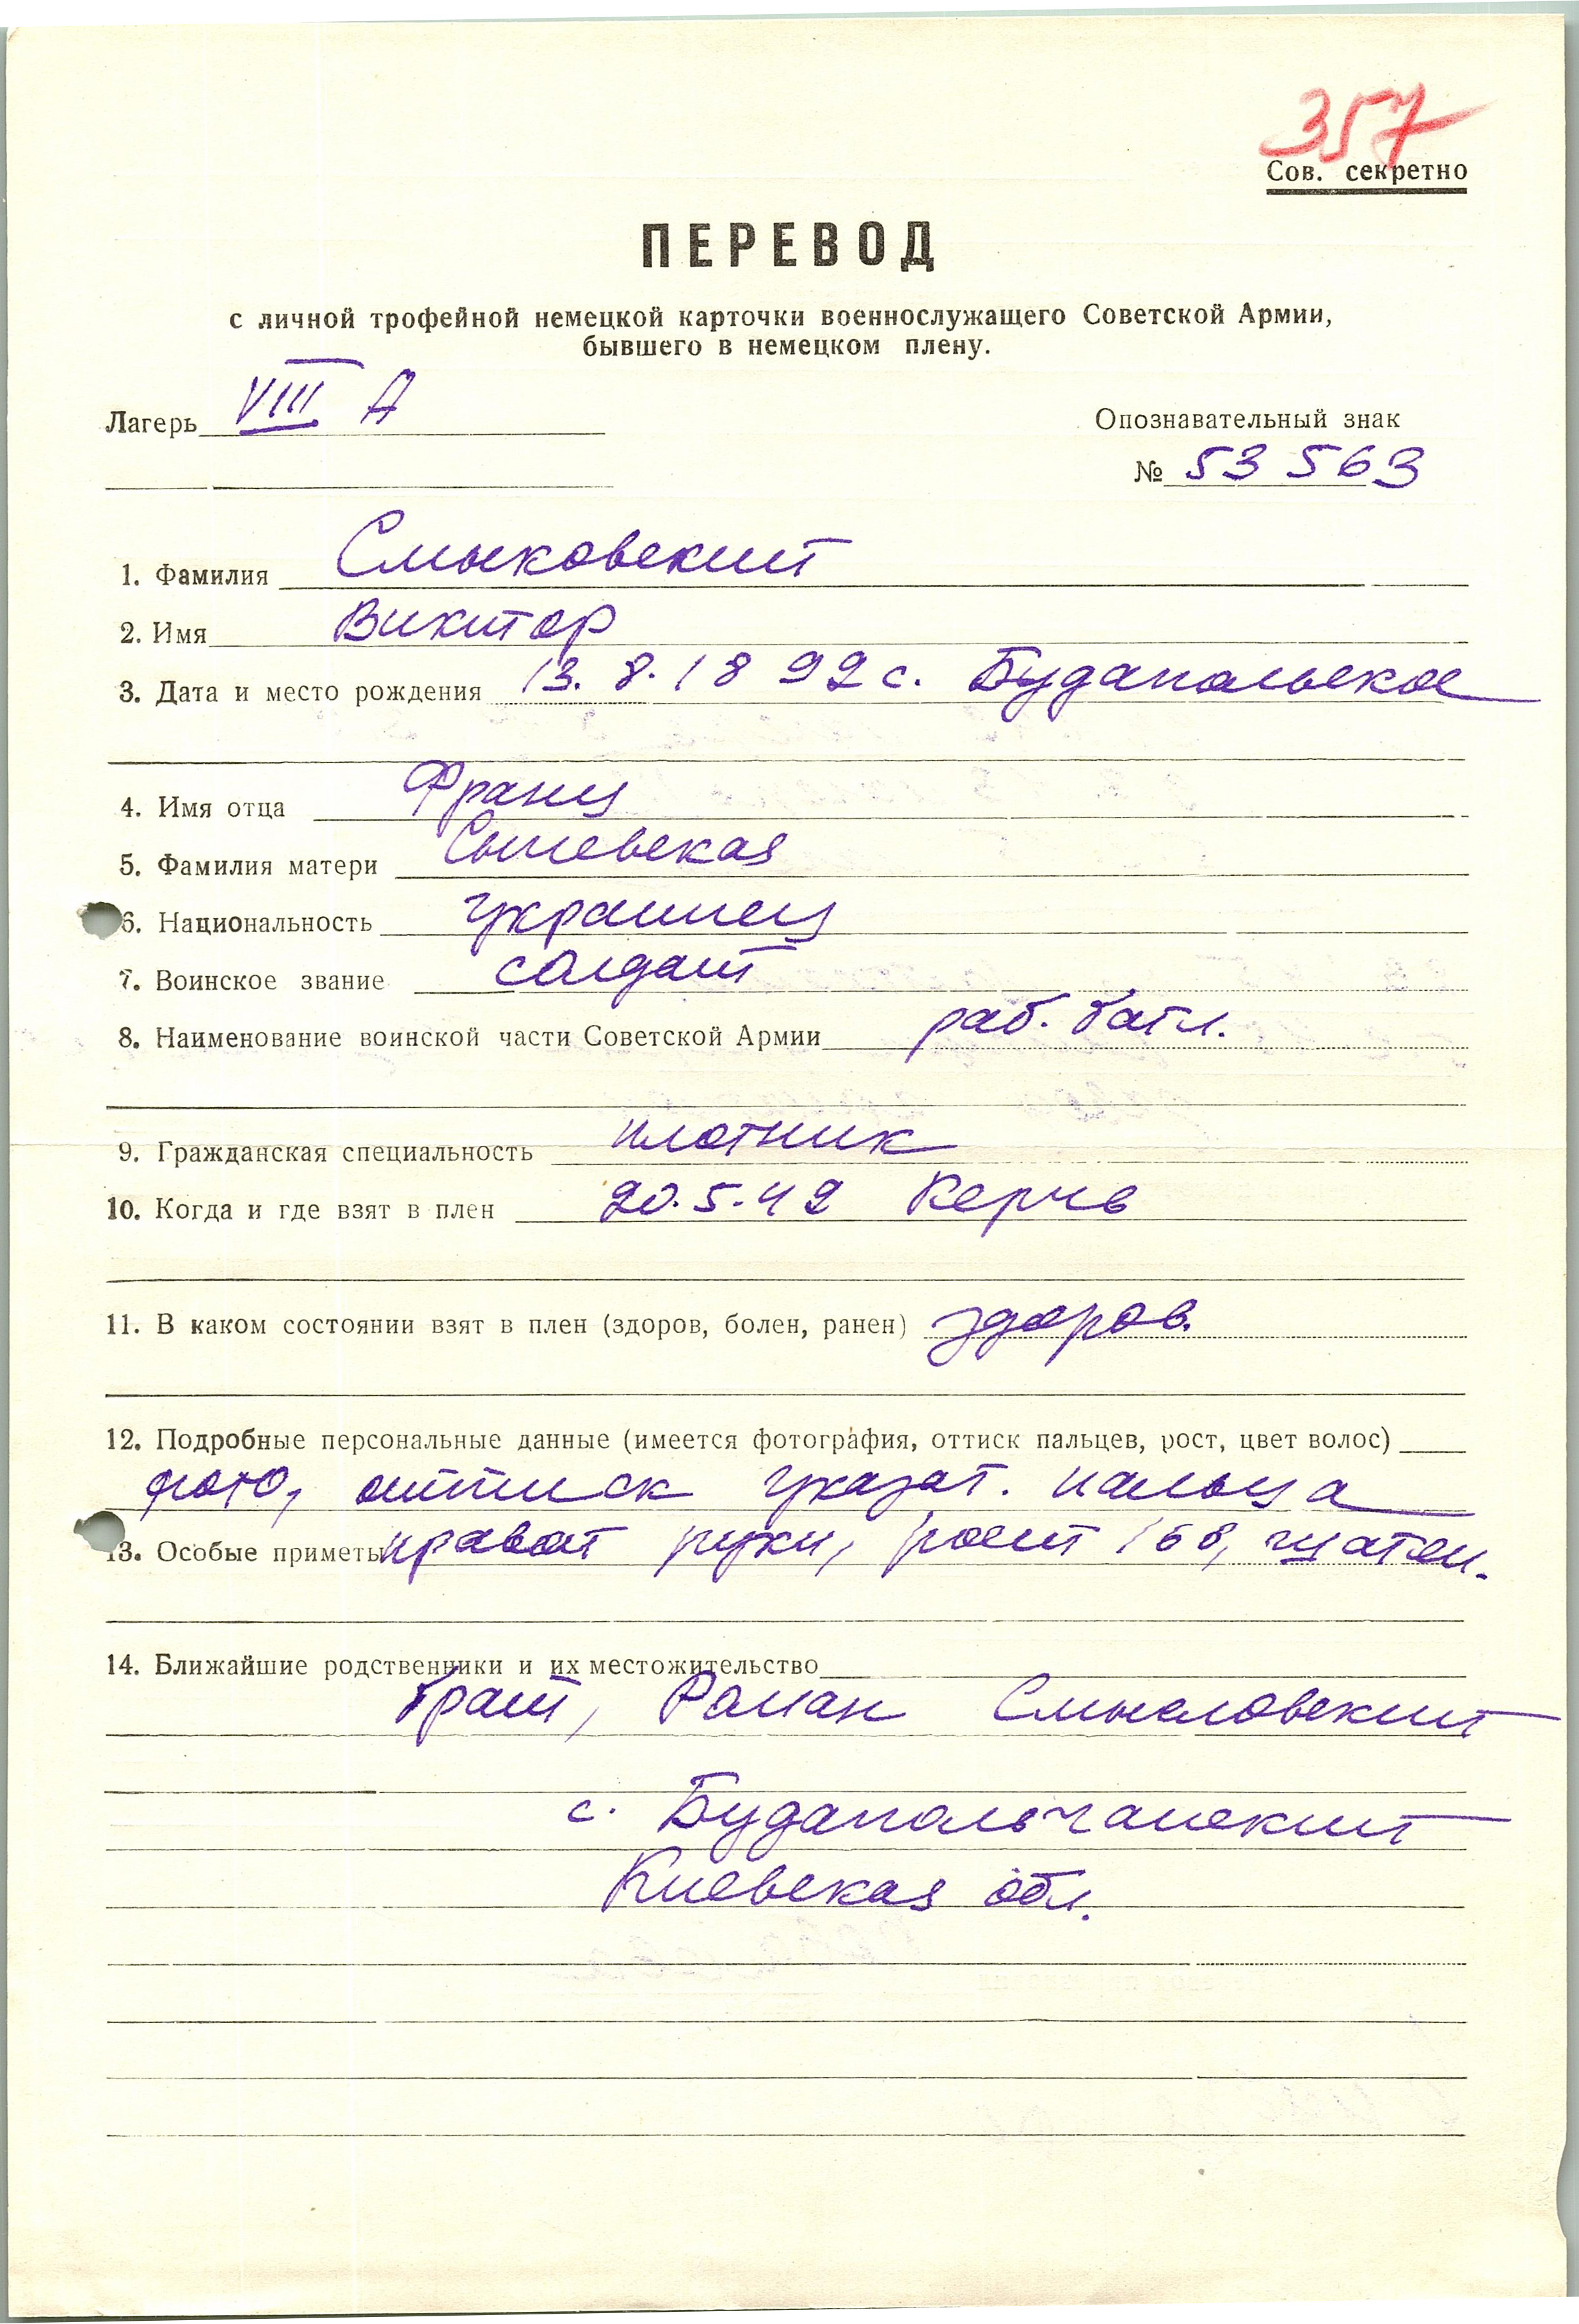 357
Сов. секретно
ПЕРЕВОД
с личной трофейной немецкой карточки военнослужащего Советской Армии,
бывшего в немецком плену.
Лагерь VIII A
Опознавательный знак
№ 53 563
1. Фамилия Смыковский
2. Имя Виктор
3. Дата и место рождения 13.8.1892 с. Будапольское
4. Имя отца Франц
5. Фамилия матери
6. Национальность украинец
7. Воинское звание солдат
8. Наименование воинской части Советской Армии раб. батл.
9. Гражданская специальность плотник
10. Когда и где взят в плен 20.5.42 Керчь
11. В каком состоянии взят в плен (здоров, болен, ранен) здоров.
12. Подробные персональные данные (имеется фотография, оттиск пальцев, рост, цвет волос)
фото, оттиск указат. пальца
13. Особые приметы правой руки, рост 168, шатен.
14. Ближайшие родственники и их местожительство
брат, Роман
с.
Киевская обл.